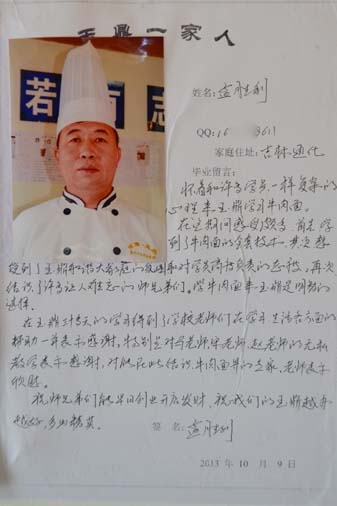 王鼎一家人
若 有 志
姓名:孟胜利
QQ:16 3611
家庭住址:吉林通化
毕业留言:
怀着和许多学员一样复杂的
心程来王鼎学习牛肉面。
在这期间 首先学
到了牛肉面的 技术,其次感
受到了王鼎和谐大家庭的 和对学员 负责的态度,再次
结识了许多让人难忘的师兄弟们。学牛肉面来王鼎是明智的
选择。
在王鼎 天的学习得到了学校老师们在学习生活各方面的
帮助一并表示感谢,特别是对马老师宋老师,赵老师的无私
教学表示感谢,对能在此结识牛肉面界的专家、老师表示
欣慰。
祝师兄弟们能早日创业开店发财,祝我们的王鼎越办
越好,多出精英。
签 名:孟胜利
2013 年 10 月 9 日